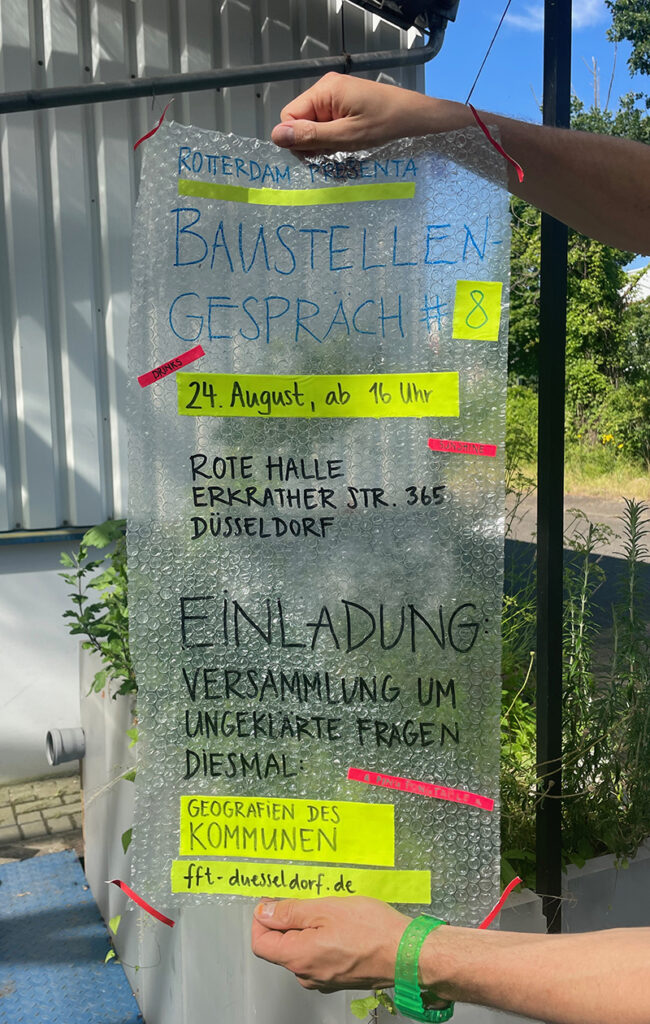 ROTTERDAM PRESENTA
BAUSTELLEN-
GESPRÄCH # 8
DRINKS
24. August, ab 16 Uhr
SUNSHINE
ROTE HALLE
ERKRATHER STR. 365
DÜSSELDORF
EINLADUNG:
VERSAMMLUNG UM
UNGEKLÄRTE FRAGEN
DIESMAL:
GEOGRAFIEN DES
KOMMUNEN
fft-duesseldorf.de